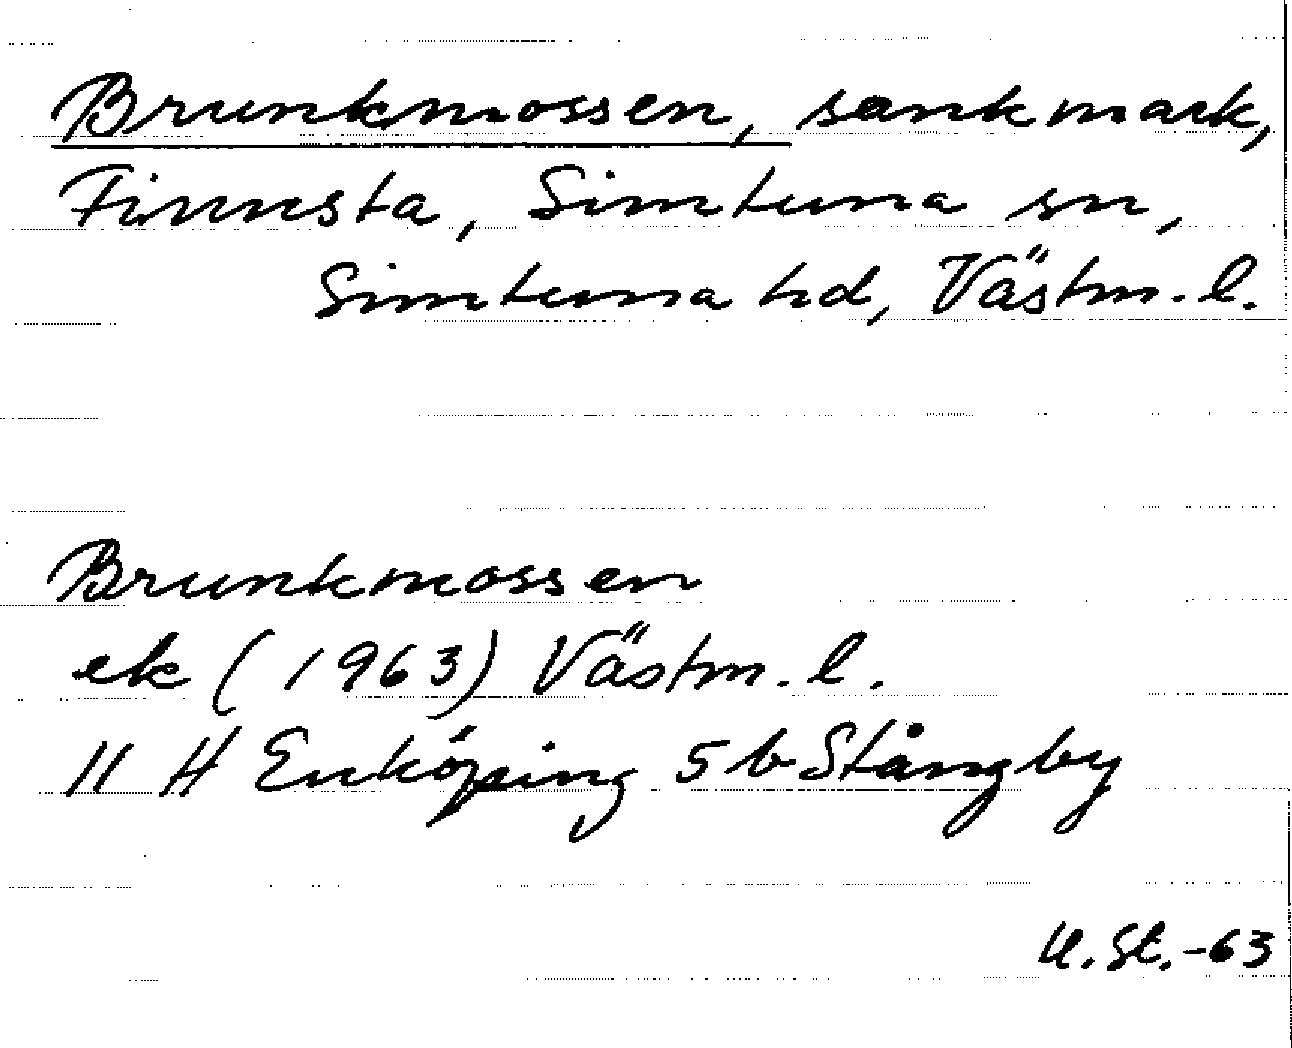 Brunkmossen, sankmark,
Finnsta, Simtuna sn,
Simtuna hd, Västm. l.
Brunkmossen
ek (1963) Västm. l.
11 H Enköping 5 b Stångby
U. St. -63